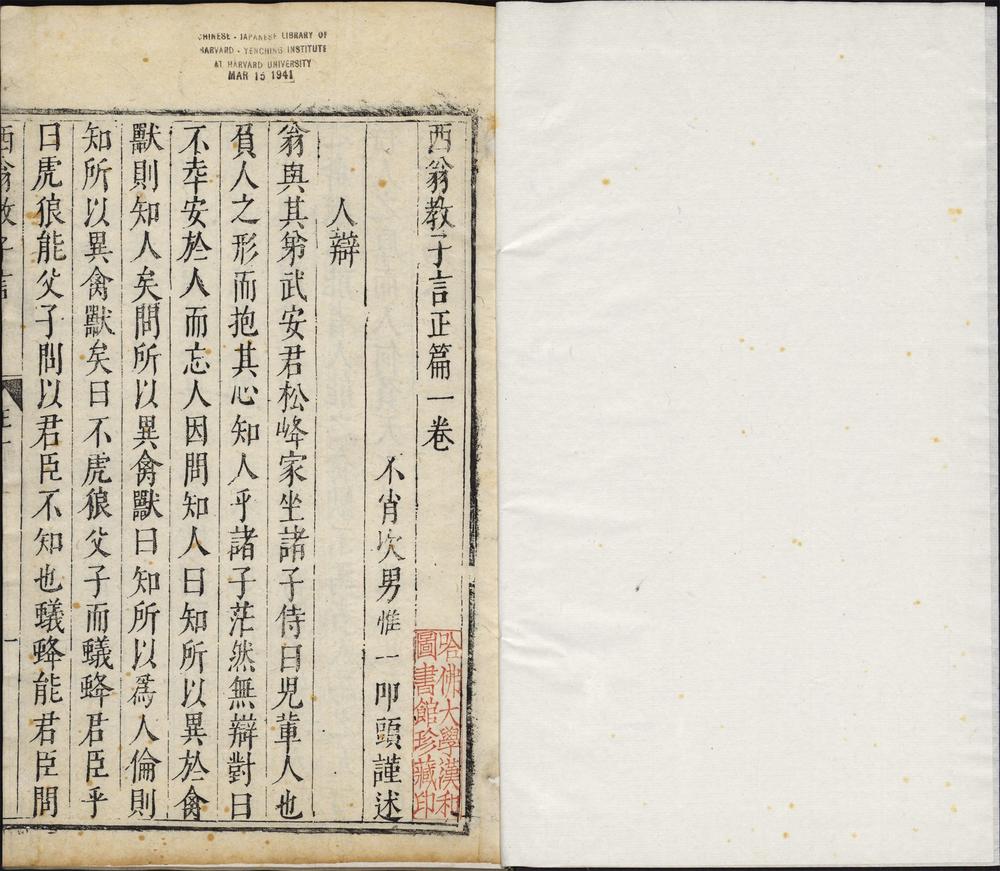 CHINESE - JAPANESE LIBRARY OF
HARVARD - YENCHING INSTITUTE
AT HARVARD UNIVERSITY
MAR 15 1941
西翁教子言正篇一卷
不肖次男惟一叩頭謹述
人辯
翁與其弟武安君松峰家坐諸子侍曰兒輩人也
負人之形而抱其心知人乎諸子茫然無辯對曰
不幸安於人而忘人因問知人曰知所以異於禽
獸則知人矣問所以異禽獸曰知所以爲人倫則
知所以異禽獸矣曰不虎狼父子而蟻蜂君臣乎
曰虎狼能父子問以君臣不知也蟻蜂能君臣問
西翁教子言
一
哈佛大學漢和
圖書館珍藏印